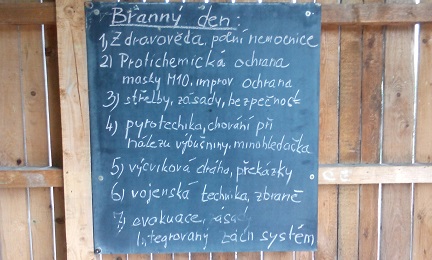 Branný den:
1, Zdravověda, polní nemocnice
2) Protichemická ochrana
masky M10, improv ochrana
3) střelby, zásady, bezpečnost
4) pyrotechika, chování při
nálezu výbušniny, minohledačka
5) výcviková dráha, překážky
6) vojenská technika, zbraně
7) evakuace, zásady
Integrovaný zách systém